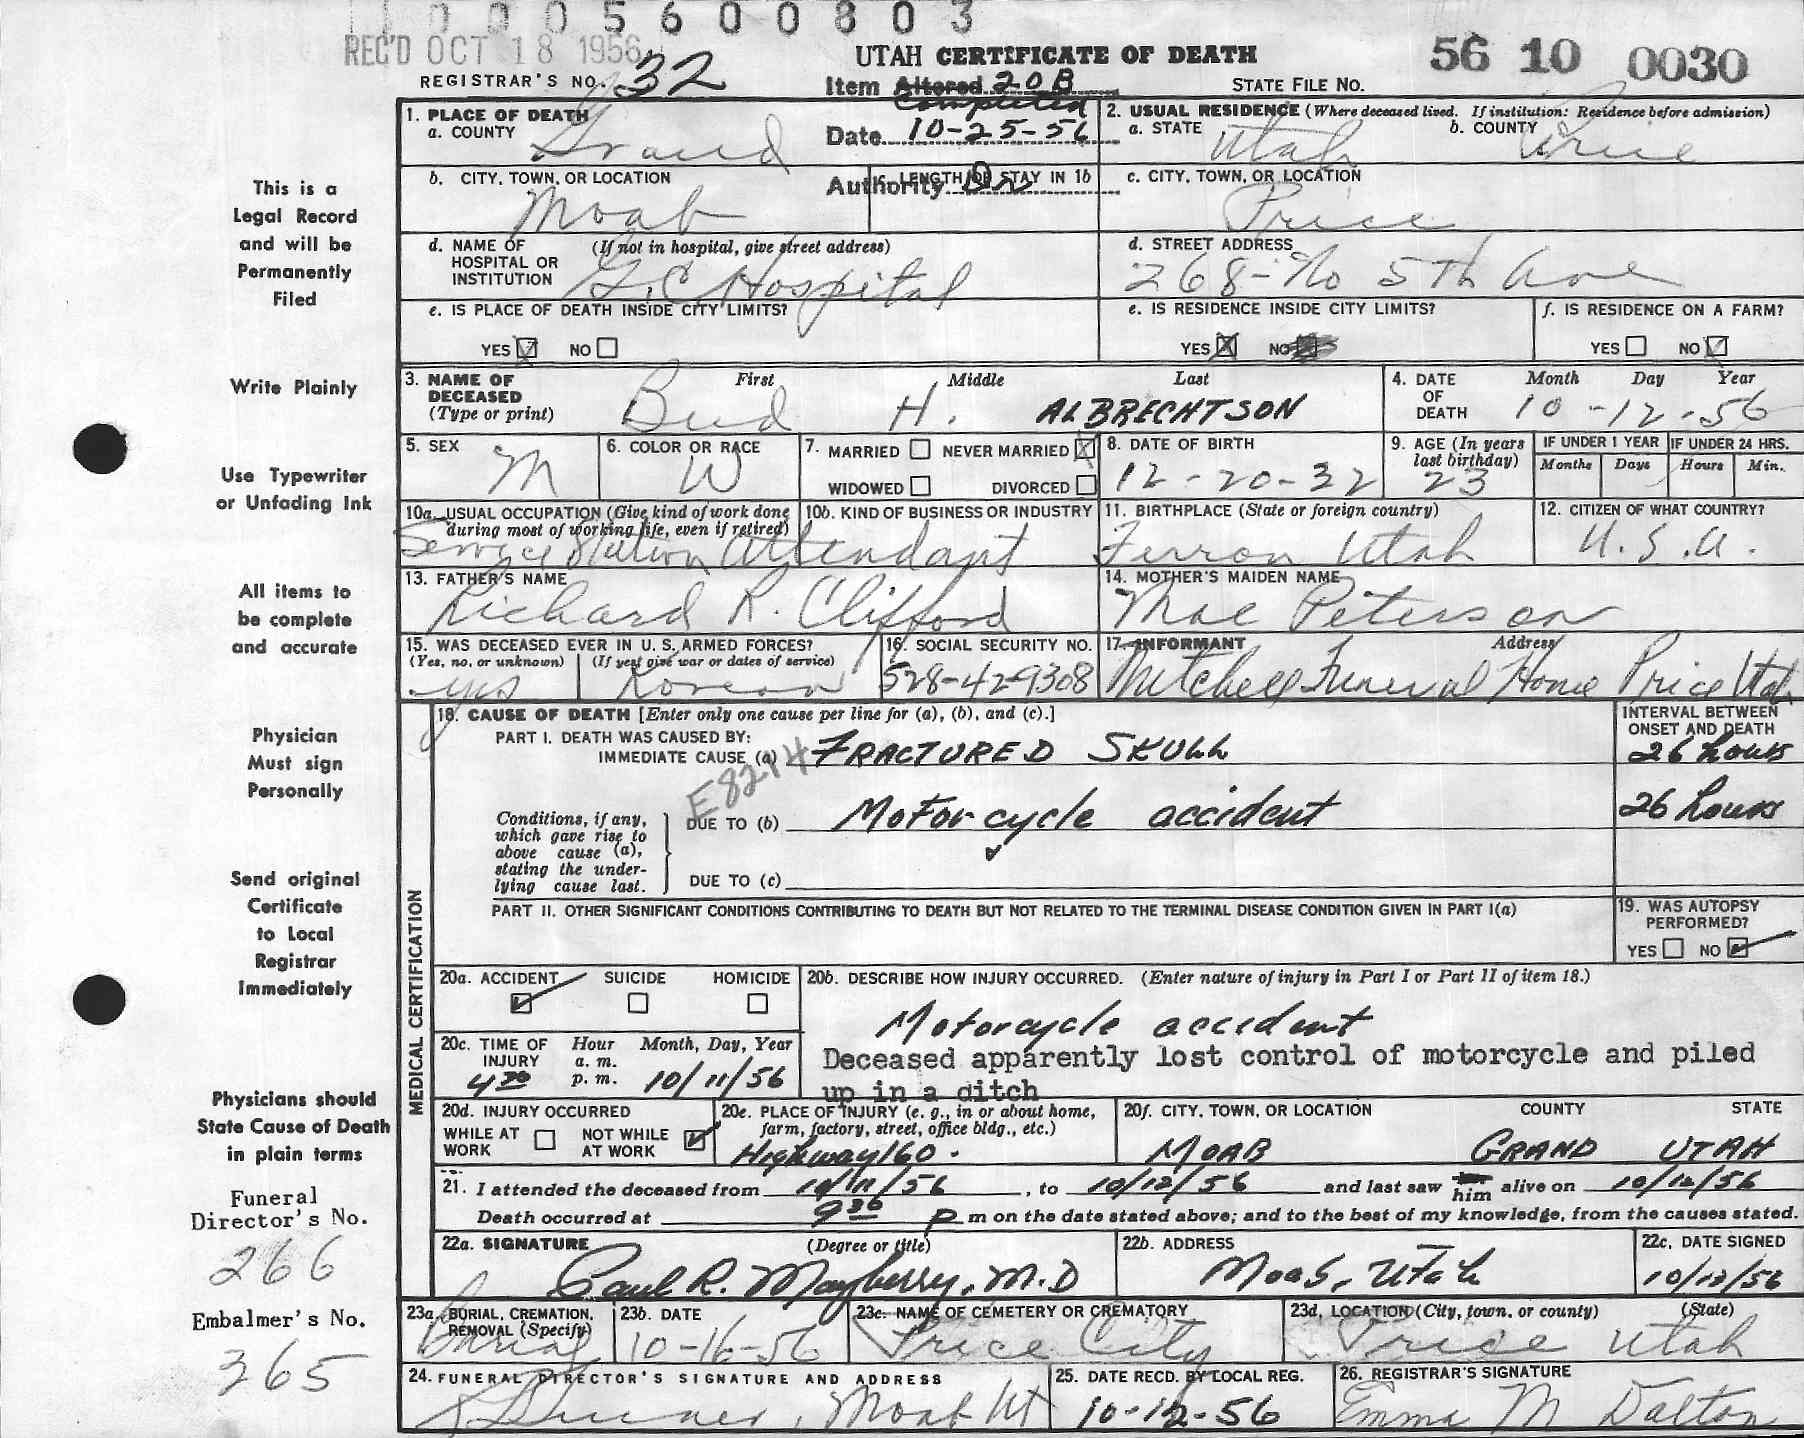 11000560 0803
REC'D OCT 18 1956
UTAH CERTIFICATE OF DEATH
56 10 0030
REGISTRAR'S NO. 32
Item Altered 20B
Completed
STATE FILE NO.
Date 10-25-56
Authority
1. PLACE OF DEATH
a. COUNTY
Grand
2. USUAL RESIDENCE (Where deceased lived. If institution: Residence before admission)
a. STATE Utah b. COUNTY Price
b. CITY, TOWN, OR LOCATION
Moab
c. LENGTH OF STAY IN 1b
c. CITY, TOWN, OR LOCATION
Price
d. NAME OF HOSPITAL OR INSTITUTION (If not in hospital, give street address)
G.C. Hospital
d. STREET ADDRESS
268-No 5th Ave
e. IS PLACE OF DEATH INSIDE CITY LIMITS?
YES NO
e. IS RESIDENCE INSIDE CITY LIMITS?
YES NO
f. IS RESIDENCE ON A FARM?
YES NO
3. NAME OF DECEASED (Type or print) First Middle Last
Bud H. ALBRECHTSON
4. DATE OF DEATH Month Day Year
10-12-56
5. SEX
M
6. COLOR OR RACE
W
7. MARRIED NEVER MARRIED
WIDOWED DIVORCED
8. DATE OF BIRTH
12-20-32
9. AGE (In years last birthday)
23
IF UNDER 1 YEAR
Months Days
IF UNDER 24 HRS.
Hours Min.
10a. USUAL OCCUPATION (Give kind of work done during most of working life, even if retired)
Service Station Attendant
10b. KIND OF BUSINESS OR INDUSTRY
11. BIRTHPLACE (State or foreign country)
Ferron Utah
12. CITIZEN OF WHAT COUNTRY?
U.S.A.
13. FATHER'S NAME
Richard R. Clifford
14. MOTHER'S MAIDEN NAME
Mae Peterson
15. WAS DECEASED EVER IN U. S. ARMED FORCES?
(Yes, no, or unknown) (If yes give war or dates of service)
yes Korean
16. SOCIAL SECURITY NO.
528-42-9308
17. INFORMANT Address
Mitchell Funeral Home Price Utah
18. CAUSE OF DEATH [Enter only one cause per line for (a), (b), and (c).]
INTERVAL BETWEEN ONSET AND DEATH
PART I. DEATH WAS CAUSED BY:
IMMEDIATE CAUSE (a) FRACTURED SKULL 26 hours
E8214
Conditions, if any, which gave rise to above cause (a), stating the underlying cause last.
DUE TO (b) Motor cycle accident 26 hours
DUE TO (c)
PART II. OTHER SIGNIFICANT CONDITIONS CONTRIBUTING TO DEATH BUT NOT RELATED TO THE TERMINAL DISEASE CONDITION GIVEN IN PART I(a)
19. WAS AUTOPSY PERFORMED?
YES NO
MEDICAL CERTIFICATION
20a. ACCIDENT SUICIDE HOMICIDE
20b. DESCRIBE HOW INJURY OCCURRED. (Enter nature of injury in Part I or Part II of item 18.)
Motorcycle accident
Deceased apparently lost control of motorcycle and piled
up in a ditch
20c. TIME OF INJURY Hour a. m. p. m. Month, Day, Year
4 30 10/11/56
20d. INJURY OCCURRED
WHILE AT WORK NOT WHILE AT WORK
20e. PLACE OF INJURY (e. g., in or about home, farm, factory, street, office bldg., etc.)
Highway 160.
20f. CITY, TOWN, OR LOCATION COUNTY STATE
MOAB GRAND UTAH
21. I attended the deceased from 10/11/56, to 10/12/56 and last saw him alive on 10/12/56
Death occurred at 9 30 P m on the date stated above; and to the best of my knowledge, from the causes stated.
22a. SIGNATURE (Degree or title)
Paul R. Mayberry, M.D
22b. ADDRESS
Moab, Utah
22c. DATE SIGNED
10/12/56
23a. BURIAL, CREMATION, REMOVAL (Specify)
Burial
23b. DATE
10-16-56
23c. NAME OF CEMETERY OR CREMATORY
Price City
23d. LOCATION (City, town, or county) (State)
Price Utah
24. FUNERAL DIRECTOR'S SIGNATURE AND ADDRESS
Moab Ut
25. DATE RECD. BY LOCAL REG.
10-12-56
26. REGISTRAR'S SIGNATURE
Emma M Dalton
This is a
Legal Record
and will be
Permanently
Filed
Write Plainly
Use Typewriter
or Unfading Ink
All items to
be complete
and accurate
Physician
Must sign
Personally
Send original
Certificate
to Local
Registrar
Immediately
Physicians should
State Cause of Death
in plain terms
Funeral
Director's No.
266
Embalmer's No.
365